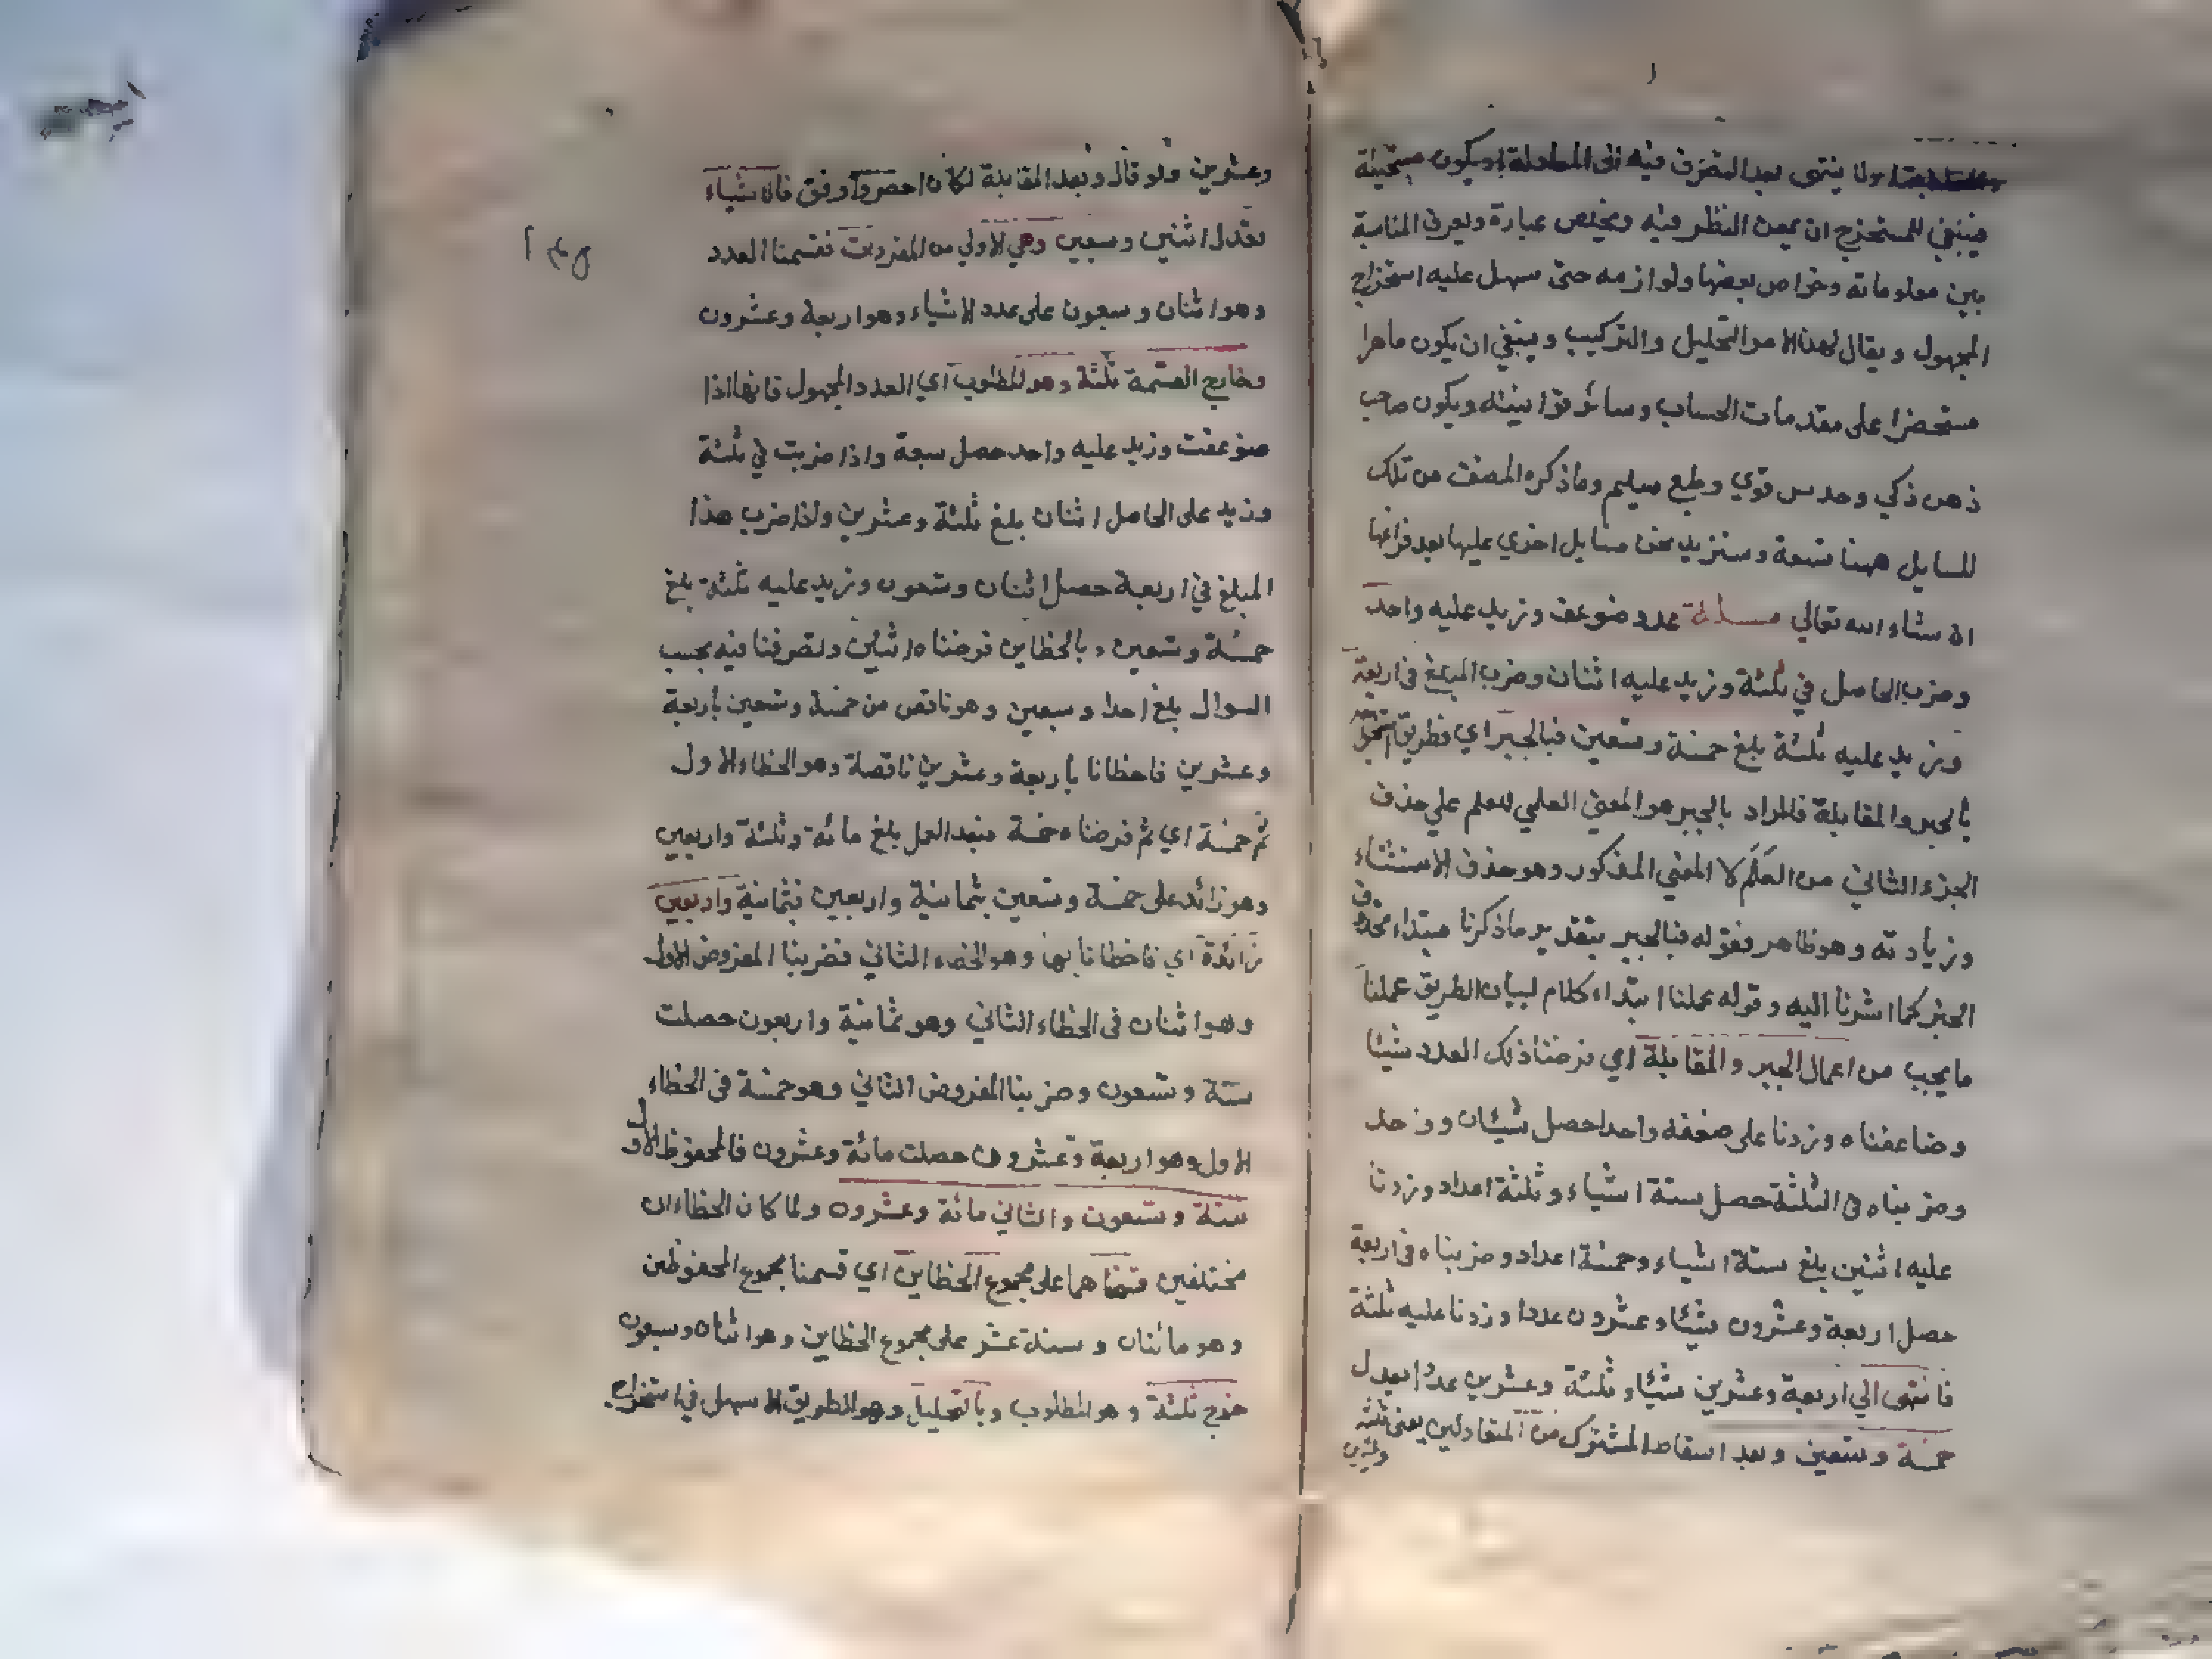 ولا ينتهى بعد التصرف فيه الى المعادلة او يكون مستحيلة
فينبغي للمستخرج ان يمعن النظر فيه ويخلص عبارة ويعرف المناسبة
بين معلوماته وخواص بعضها ولوازمه حتى سهل عليه استخراج
المجهول ويقال لهذا الامر التحليل والتركيب وينبغي ان يكون ماهرا
مستحضرا على مقدمات الحساب وسائر قوانينه ويكون صاحب
ذهن ذكي وحدس قوي وطبع سليم وما ذكره المصنف من تلك
المسايل ههنا تسعة وسنزيد نحن مسايل اخري عليها بعد فراغها
ان شاء الله تعالي مسئلة عدد ضوعف وزيد عليه واحد
وضرب الحاصل في ثلثة وزيد عليه اثنان وضرب المبلغ في اربعة
وزيد عليه ثلثة بلغ خمسة وتسعين فبالجبر اي فطريق استخراجه
بالجبر والمقابلة فالمراد بالجبر هو المعنى العلمي للعلم علي حذف
الجزء الثاني من العَلَم لا المعني المذكور وهو حذف الاستثناء
وزيادته وهو ظاهر فقوله فبالجبر بتقدير ما ذكرنا مبتداء محذوف
الخبر كما اشرنا اليه وقوله عملنا ابتداء كلام لبيان الطريق عملنا
ما يجب من اعمال الجبر والمقابلة اي فرضنا ذلك العدد شيئا
وضاعفناه وزدنا على ضعفه واحدا حصل شيئان وواحد
وضربناه في الثلثة حصل ستة اشياء وثلثة اعداد وزدنا
عليه اثنين بلغ ستة اشياء وخمسة اعداد وضربناه في اربعة
حصل اربعة وعشرون شيئا وعشرون عددا وزدنا عليه ثلثة
فانتهى الي اربعة وعشرين شيئا وثلثة وعشرين عددا يعدل
خمسة وتسعين وبعد اسقاط المشترك من المتعادلين يعني ثلثة وعشرين
وعشرين ولو قال وبعد المقابلة لكان احصر واوفق فالاشياء
تعدل اثنين وسبعين وهي الاولي من المفردات فقسمنا العدد
وهو اثنان وسبعون على عدد الاشياء وهو اربعة وعشرون
وخارج القسمة ثلثة وهو المطلوب اي العدد المجهول فانها اذا
ضوعفت وزيد عليه واحد حصل سبعة واذا ضربت في ثلثة
وزيد على الحاصل اثنان بلغ ثلثة وعشرين واذا ضرب هذا
المبلغ في اربعة حصل اثنان وتسعون وزيد عليه ثلثة بلغ
خمسة وتسعين وبالخطاين فرضناه اثنين وتصرفنا فيه بحسب
السوال بلغ احدا وسبعين وهو ناقص من خمسة وتسعين باربعة
وعشرين فاخطانا باربعة وعشرين ناقصة وهو الخطاء الاول
ثم خمسة اي ثم فرضناه خمسة فبعد العمل بلغ مائة وثلثة واربعين
وهو زائد على خمسة وتسعين بثمانية واربعين فثمانية واربعين
زائدة اي فاخطانا بها وهو الخطاء الثاني فضربنا المفروض الاول
وهو اثنان في الخطاء الثاني وهو ثمانية واربعون حصلت
ستة وتسعون وضربنا المفروض الثاني وهو خمسة في الخطاء
الاول وهو اربعة وعشرون حصلت مائة وعشرون فالمحفوظ الاول
ستة وتسعون والثاني مائة وعشرون ولما كان الخطاءان
مختلفين قسمناهما على مجموع الخطاين اي قسمنا مجموع المحفوظين
وهو مائتان وستة عشر على مجموع الخطاين وهو اثنان وسبعون
خرج ثلثة وهو المطلوب وبالتحليل وهو الطريق الاسهل في استخراج